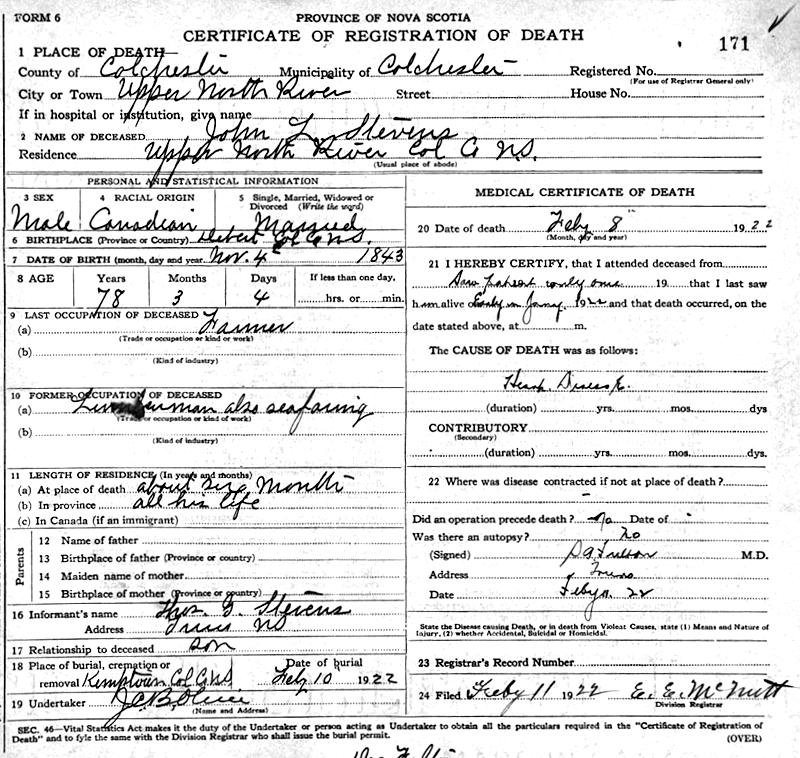 FORM 6
PROVINCE OF NOVA SCOTIA
CERTIFICATE OF REGISTRATION OF DEATH
171
1 PLACE OF DEATH
County of Colchester Municipality of Colchester Registered No.
(For use of Registrar General only)
City or Town Upper North River Street House No.
If in hospital or institution, give name
2 NAME OF DECEASED John L. Stevens
Residence Upper North River Col Co N.S.
(Usual place of abode)
PERSONAL AND STATISTICAL INFORMATION
3 SEX 4 RACIAL ORIGIN 5 Single, Married, Widowed or Divorced (Write the word)
Male Canadian Married
6 BIRTHPLACE (Province or Country) Debert Col Co N.S.
7 DATE OF BIRTH (month, day and year) Nov. 4 1843
8 AGE Years Months Days If less than one day,
78 3 4 hrs. or min.
9 LAST OCCUPATION OF DECEASED
(a) Farmer
(Trade or occupation or kind or work)
(b)
(Kind of industry)
10 FORMER OCCUPATION OF DECEASED
(a) Lumberman also seafaring
(Trade or occupation or kind of work)
(b)
(Kind of industry)
11 LENGTH OF RESIDENCE (In years and months)
(a) At place of death about six Months
(b) In province all his life
(c) In Canada (if an immigrant)
Parents
12 Name of father
13 Birthplace of father (Province or country)
14 Maiden name of mother
15 Birthplace of mother (Province or country)
16 Informant's name Thos. Stevens
Address Truro NS
17 Relationship to deceased son
18 Place of burial, cremation or removal Kemptown Col Co N.S Date of burial Feby 10 1922
19 Undertaker
(Name and Address)
MEDICAL CERTIFICATE OF DEATH
20 Date of death Feby 8 1922
(Month, day and year)
21 I HEREBY CERTIFY, that I attended deceased from
Saw patient only once 19 that I last saw
him alive Early in Jany. 1922 and that death occurred, on the
date stated above, at m.
The CAUSE OF DEATH was as follows:
Heart Disease
(duration) yrs. mos. dys
CONTRIBUTORY
(Secondary)
(duration) yrs. mos. dys.
22 Where was disease contracted if not at place of death?
Did an operation precede death? No Date of
Was there an autopsy? No
(Signed) Fulton M.D.
Address Truro
Date Feby 22
State the Disease causing Death, or in death from Violent Causes, state (1) Means and Nature of
Injury, (2) whether Accidental, Suicidal or Homicidal.
23 Registrar's Record Number
24 Filed Feby 11 1922 E. E. McNutt
Division Registrar
SEC. 46—Vital Statistics Act makes it the duty of the Undertaker or person acting as Undertaker to obtain all the particulars required in the "Certificate of Registration of
Death" and to fyle the same with the Division Registrar who shall issue the burial permit.
(OVER)